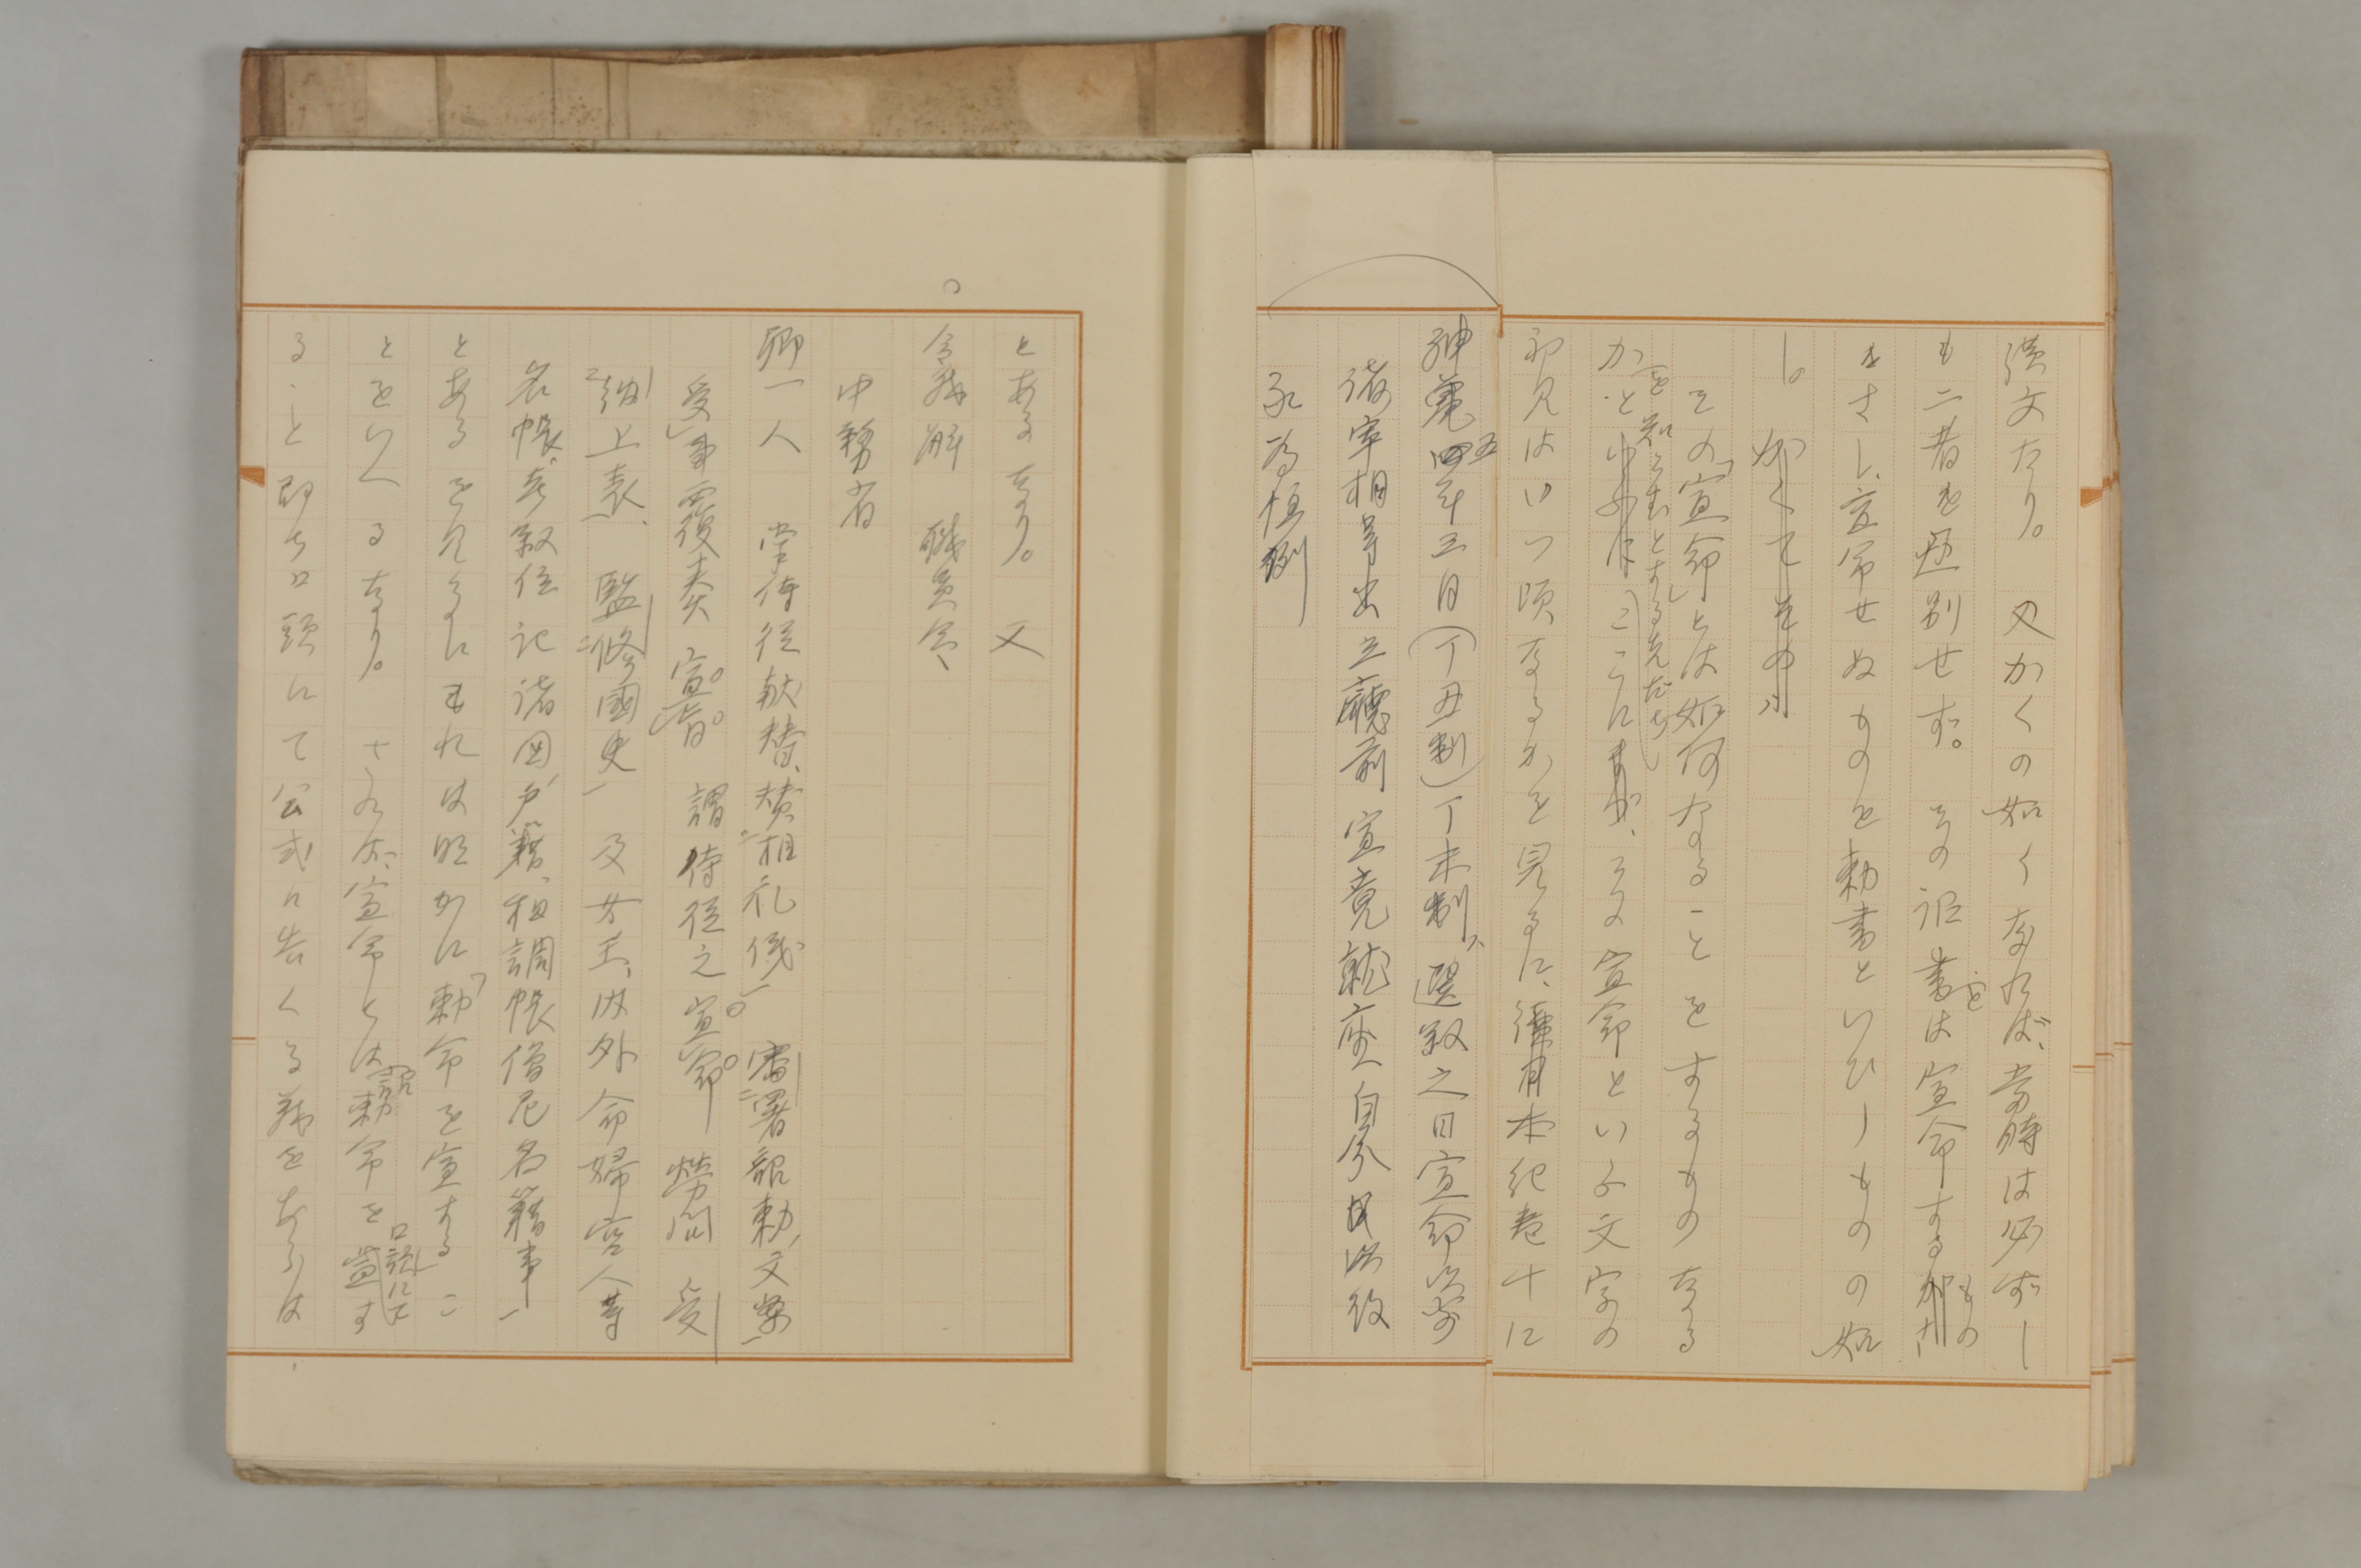 漢文たり。又かくの如くなれば、当時は必ずし
も二者を区別せず。その詔書を は宣命するもの
をさし、宣命せぬものを勅書といひしものの如
し。かくてその
その「宣命」とは如何なることをするものなる
かを知らむとする先だち、ここに まづ、その宣命といふ文字の
初見はいつ頃なるかを見るに、續日本紀巻十に
神亀五年三月(丁丑制)丁未制、選叙之日宣命以前
諸宰相等出立廳前宣竟就座自今 以後
永為恒例
とあるなり。又
令義解 職員令、
中務省
卿一人 掌侍従献替、賛相礼儀、審署詔勅文案、
受事覆奏 宣旨 謂侍従之宣命 勞問 受
納上表、監修國史、及女王、内外命婦宮人等
名帳、考叙位記諸国戸籍、租調帳僧尼名籍事
とあるを見るにこれは明かに「勅命を宣するこ
とをいへるなり。されば、宣命とは詔勅命を口頭にて宣す
ること即ち口頭にて公式に告くる義をあらは